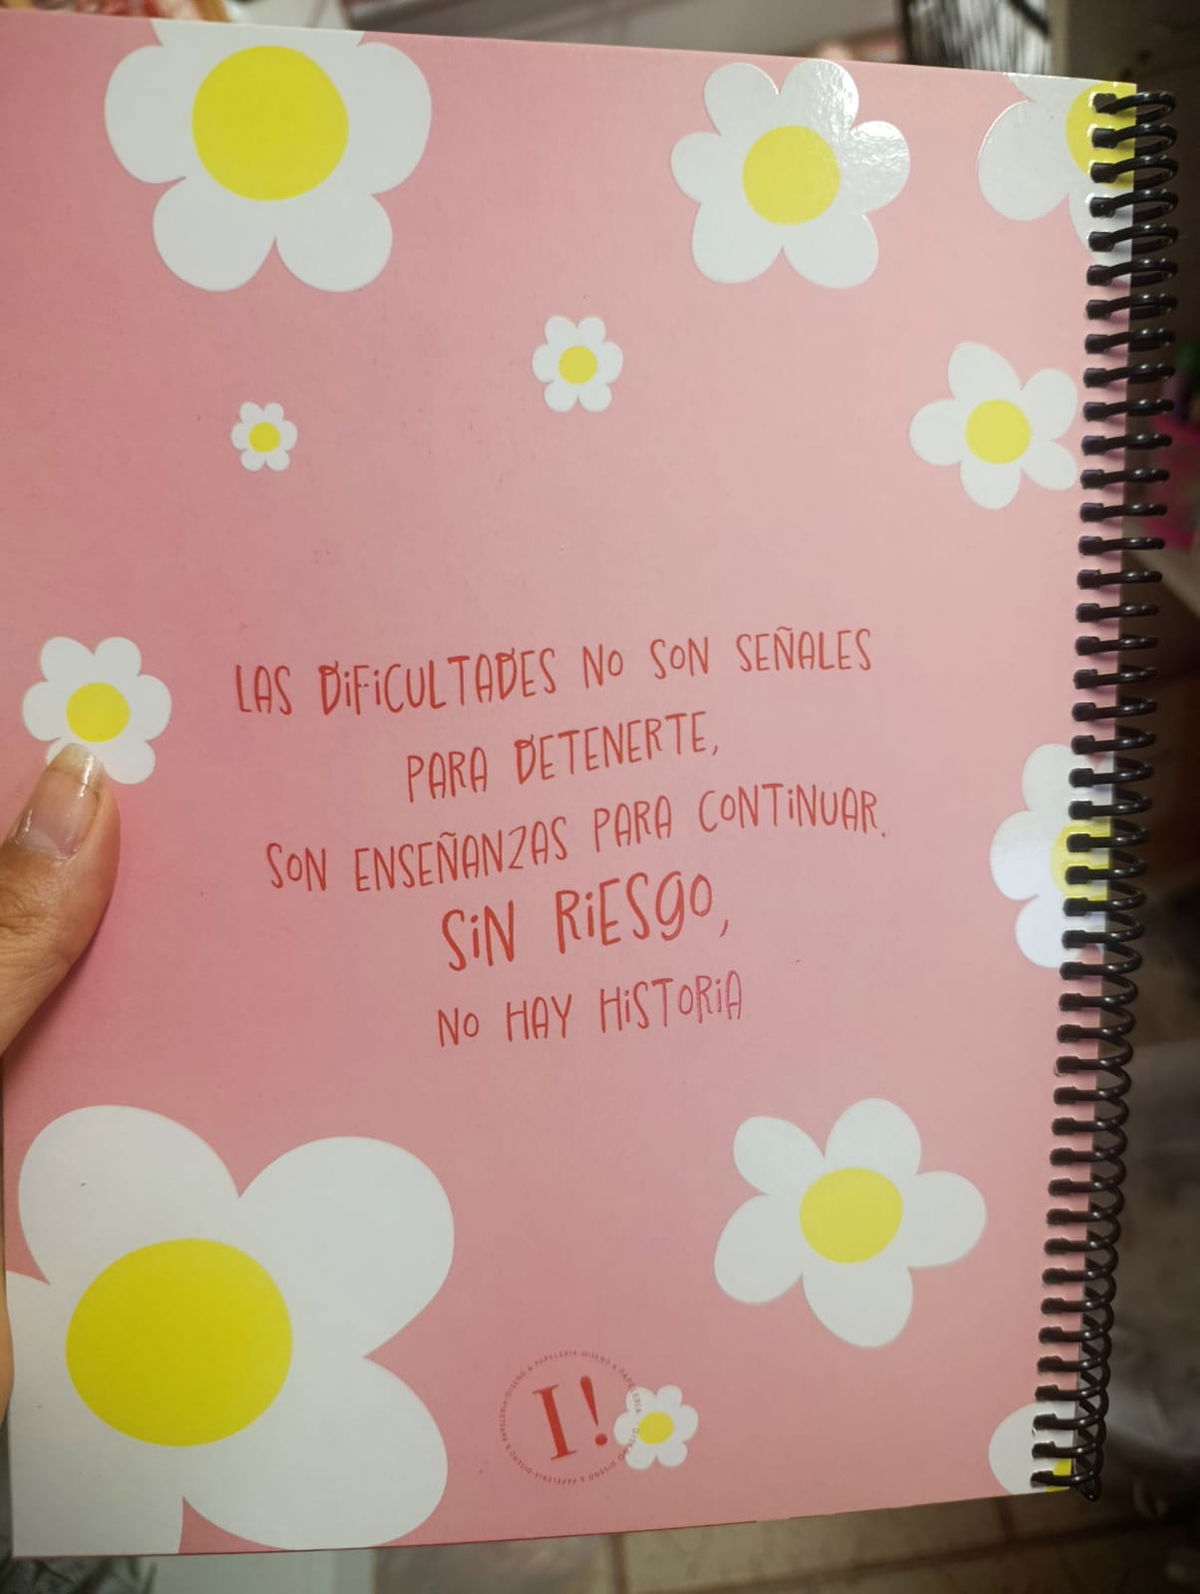 LAS DiFiCULTADES No SoN SEÑALES
PARA DETENERTE,
SoN ENSEÑANZAS PARA CoNTiNUAR.
SiN RiESgo,
No HAY HiSToRiA
I!
DISEÑO & PAPELERIA·DISEÑO & PAPELERIA·DISEÑO & PAPELERIA·DISEÑO & PAPELERIA